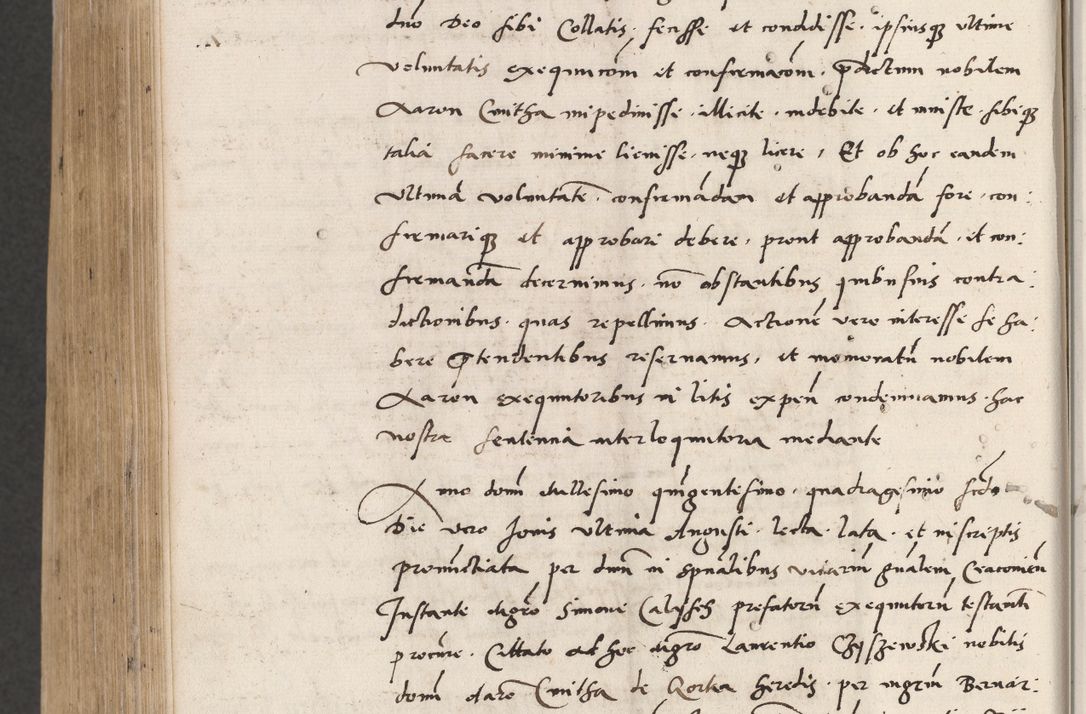 dno Deo sibi Collatis, fecisse et condidisse, ipsiusq3 ultime
voluntatis exequucom et confirmacom, pdictum nobilem
Aaron Cmitha impedivisse, illicite, indebite, et iniuste, sibiq3
talia facere minime licuisse, neq3 licere, Et ob hoc eandem
Ultima voluntate, confirmadam et approbandā fore, con:
firmariq3 et approbari debere, prout approbandā, et con:
firmandā decernimus, nō obstantibus quibusuis contra:
dictionibus, quas repellimus. Actionē vero interesse se ha:
bere ptendentibus reservamus, et memoratū nobilem
Aaron exequutoribus in litis expeñ condemnamus, hac
nostra sententia interloquutoria mediante
Anno domi Millesimo quigentesimo, quadragesimo scdo
Die vero Jovis ultima Augusti, lecta, lata, et in scriptis
pronūctiata per dnm in spūalibus vicariū gnalem Cracovień
Instante Mgro Simone prefatorū exequutorū testamti
procure. Cittato ad hoc Mgro Laurentio nobilis
domi Aaro Cmitha de heredis, per mgrm Bernar: